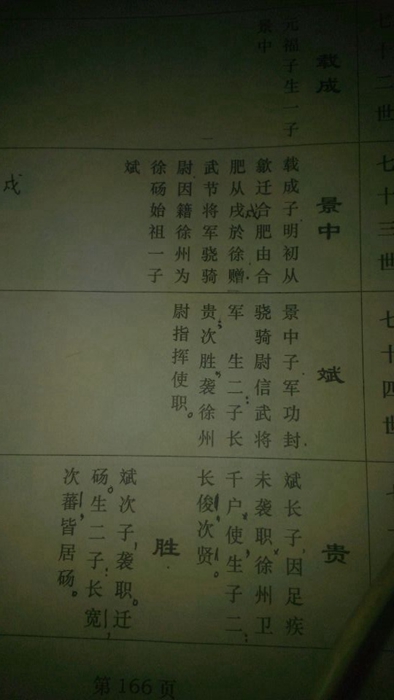 七十二世
载成
元福子生一子
景中
七十三世
景中
载成子明初从
歙迁合肥由合
肥从戍於徐赠
武节将军骁骑
尉因籍徐州为
徐砀始祖一子
斌
七十四世
斌
景中子军功封
骁骑尉信武将
军 生二子长
贵,次胜,袭徐州
尉指挥使职。
七
贵
斌长子,因足疾
未袭职,徐州卫
千户使,生子二,
长俊,次贤。
胜
斌次子,袭职。迁
砀。生二子,长宽,
次蕃,皆居砀。
第166页